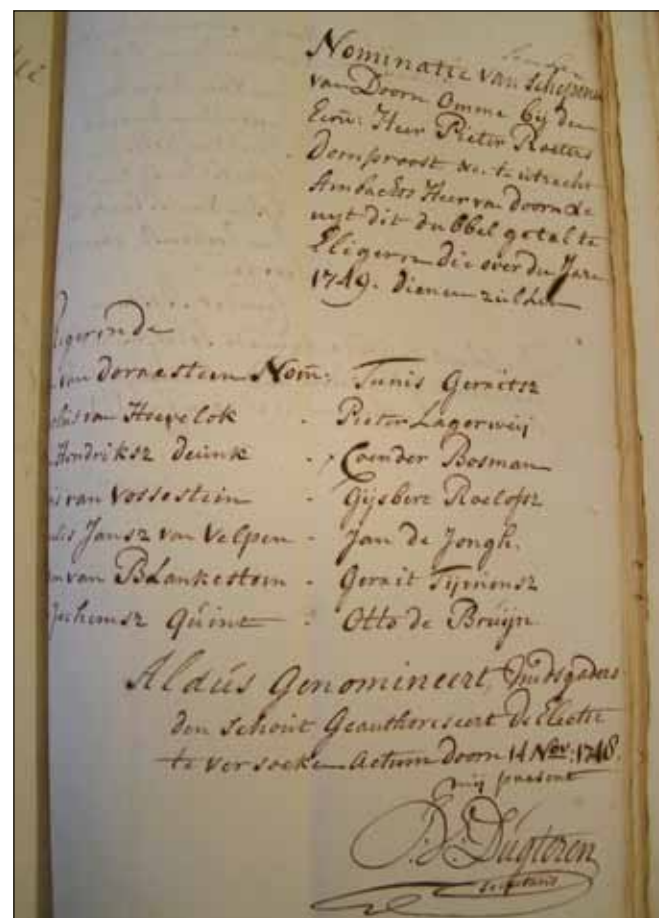 Nominatie van Schepenen
van Doorn Omme bij den
Heer Pieter Roeters
Domproost &c. te utrecht
Ambachts Heer van Doorn &c
uyt dit dubbel getal te
Eligeren die over du Jare
1749. dienen zullen
van dornasteen Nom: Tunis Gerritsz
van Hoevelok - Pieter Lagerweij
Hendriksz Deunk - Coender Bosman
van Vossestein - Gijsbert Roelofsz
Jansz van Velpen - Jan de Jongh.
van Blankestein - Gerrit
Jochemsz Quint - Otto de Bruijn
Aldús Genomineert, Mitsgaders
den schout Geauthoriseert De Electie
te versoeken Actum Doorn 14 Nov: 1748.
mij present
Dúgteren
secretaris